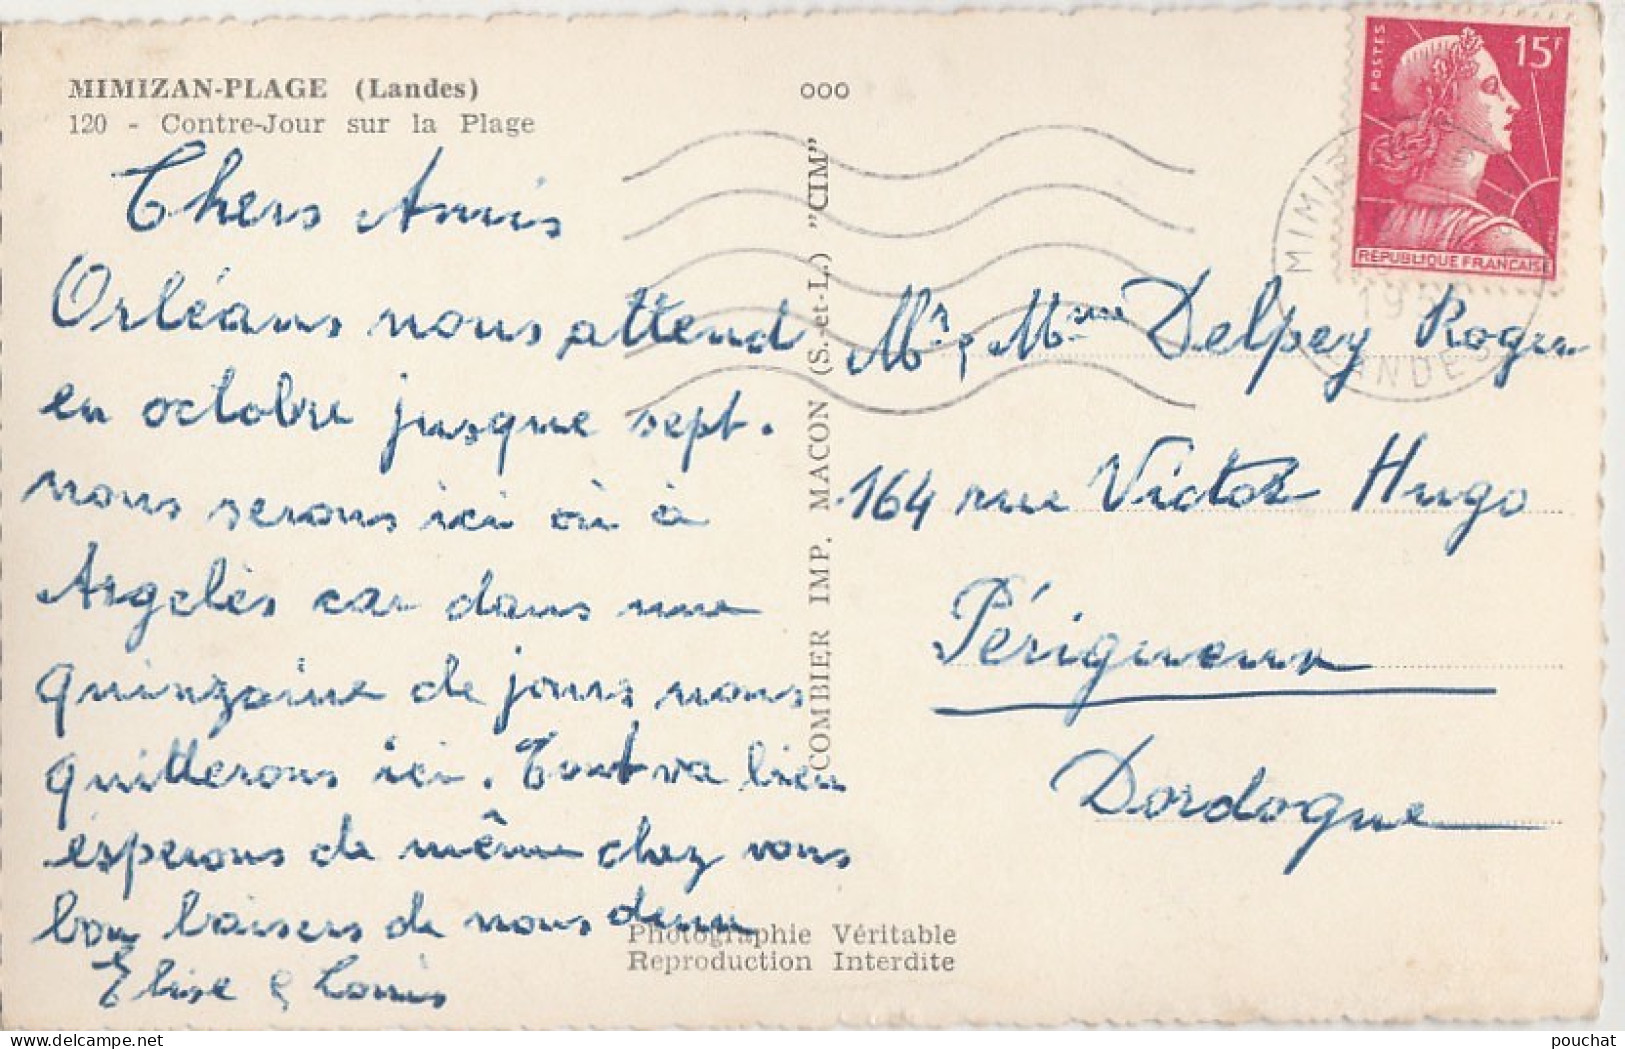 MIMIZAN-PLAGE (Landes)
120 - Contre-Jour sur la Plage
Chers Amis
Orléans nous attend
en octobre jusque sept.
nous serons ici où à
Argelès car dans une
quinzaine de jours nous
quitterons ici. Tout va bien
éspérons de même chez vous
bon baisers de nous deux
Elise & Louis
ooo
COMBIER IMP. MACON (S.-et-L.) "CIM"
Photographie Véritable
Reproduction Interdite
POSTES
15F
RÉPUBLIQUE FRANÇAISE
Mr & Mme Delpey Roger
164 rue Victor Hugo
Périgueux
Dordogne
pouchat